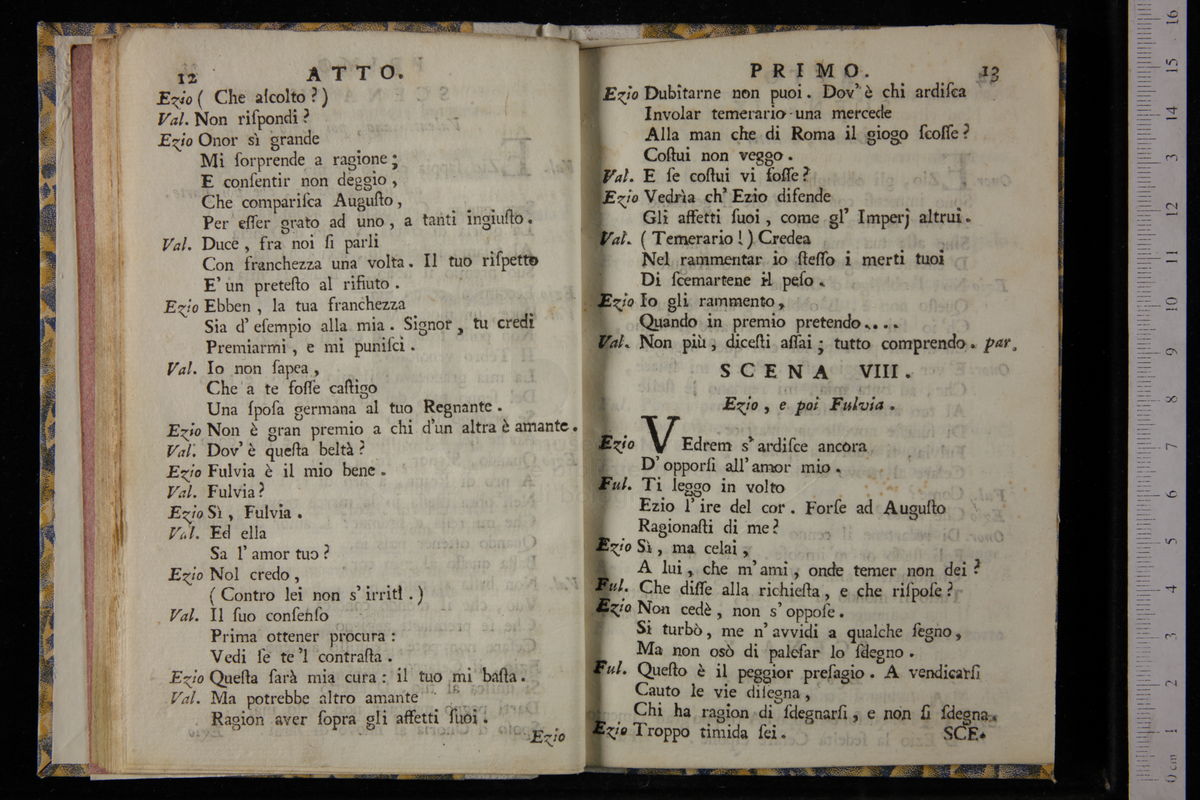 12 ATTO.
Ezio ( Che aſcolto ? )
Val. Non riſpondi ?
Ezio Onor sì grande
Mi ſorprende a ragione ;
E conſentir non deggio ,
Che compariſca Auguſto ,
Per eſſer grato ad uno , a tanti ingiuſto .
Val. Duce , fra noi ſi parli
Con franchezza una volta . Il tuo riſpetto
E' un preteſto al rifiuto .
Ezio Ebben , la tua franchezza
Sia d' eſempio alla mia . Signor , tu credi
Premiarmi , e mi puniſci .
Val. Io non ſapea ,
Che a te foſſe caſtigo
Una ſpoſa germana al tuo Regnante .
Ezio Non è gran premio a chi d'un altra è amante .
Val. Dov' è queſta beltà ?
Ezio Fulvia è il mio bene .
Val. Fulvia ?
Ezio Sì , Fulvia .
Val. Ed ella
Sa l' amor tuo ?
Ezio Nol credo ,
( Contro lei non s' irriti . )
Val. Il ſuo conſenſo
Prima ottener procura :
Vedi ſe te 'l contraſta .
Ezio Queſta ſarà mia cura : il tuo mi baſta .
Val. Ma potrebbe altro amante
Ragion aver ſopra gli affetti ſuoi .
Ezio
PRIMO. 13
Ezio Dubitarne non puoi . Dov' è chi ardiſca
Involar temerario una mercede
Alla man che di Roma il giogo ſcoſſe ?
Coſtui non veggo .
Val. E ſe coſtui vi foſſe ?
Ezio Vedrìa ch' Ezio difende
Gli affetti ſuoi , come gl' Imperj altrui .
Val. ( Temerario ! ) Credea
Nel rammentar io ſteſſo i merti tuoi
Di ſcemartene il peſo .
Ezio Io gli rammento ,
Quando in premio pretendo . . . .
Val. Non più , diceſti aſſai ; tutto comprendo . par.
SCENA VIII .
Ezio , e poi Fulvia .
Ezio VEdrem s' ardiſce ancora
D' opporſi all' amor mio .
Ful. Ti leggo in volto
Ezio l' ire del cor . Forſe ad Auguſto
Ragionaſti di me ?
Ezio Sì , ma celai ,
A lui , che m' ami , onde temer non dei ?
Ful. Che diſſe alla richieſta , e che riſpoſe ?
Ezio Non cedè , non s' oppoſe .
Si turbò , me n' avvidi a qualche ſegno ,
Ma non osò di paleſar lo ſdegno .
Ful. Queſto è il peggior preſagio . A vendicarſi
Cauto le vie diſegna ,
Chi ha ragion di ſdegnarſi , e non ſi ſdegna .
Ezio Troppo timida ſei .
SCE.